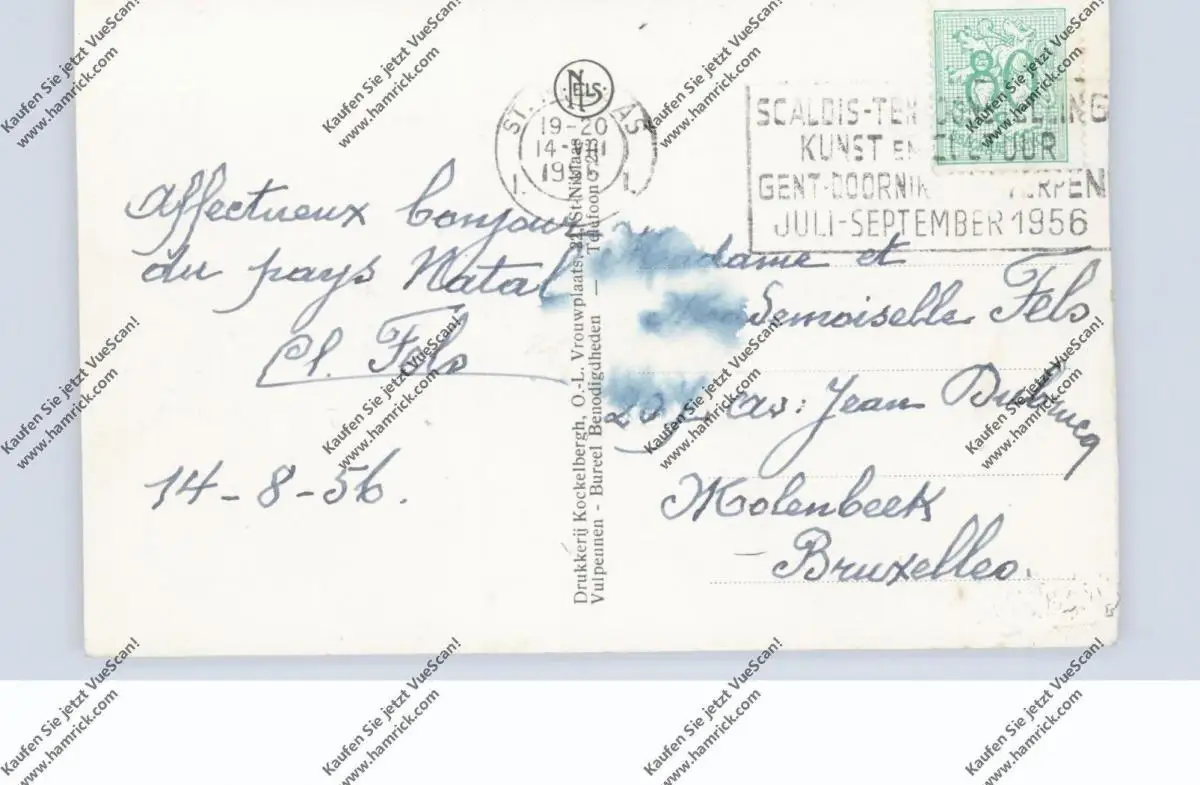 NELS
ST. AS
19-20
14-VIII
1956
80
SCALDIS-TEN
KUNST EN
GENT-DOORNIK
JULI-SEPTEMBER 1956
Affectueux bonjour
du pays Natal
Cl. Fels
14-8-56.
Drukkerij Kockelbergh, O.-L. Vrouwplaats, 22, St-Niklaas
Vulpennen - Bureel Benodigdheden — Telefoon
Madame et
Mademoiselle Fels
Av: Jean Dubrucq
Molenbeek
- Bruxelles.
Kaufen Sie jetzt VueScan!
www.hamrick.com